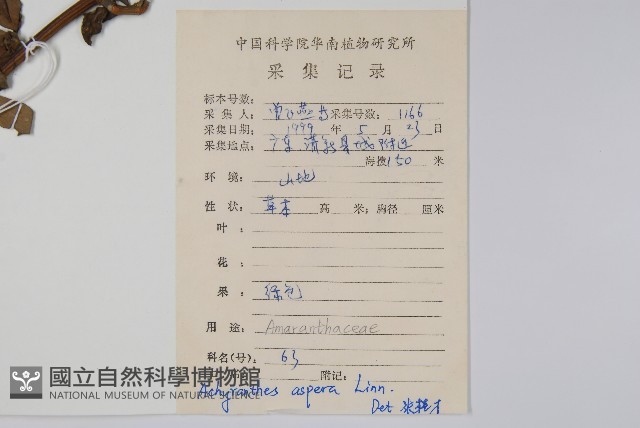 中国科学院华南植物研究所
采集记录
标本号数:
采集人: 曾飞燕 采集号数: 1166
采集日期: 1999 年 5 月 23 日
采集地点: 广东 县城附近
海拔 150 米
环境: 山地
性状: 草本 高 米; 胸径 厘米
叶:
花:
果: 绿色
用途: Amaranthaceae
科名(号): 63
附记:
Achyranthes aspera Linn.
Det
國立自然科學博物館
NATIONAL MUSEUM OF NATURAL SCIENCE